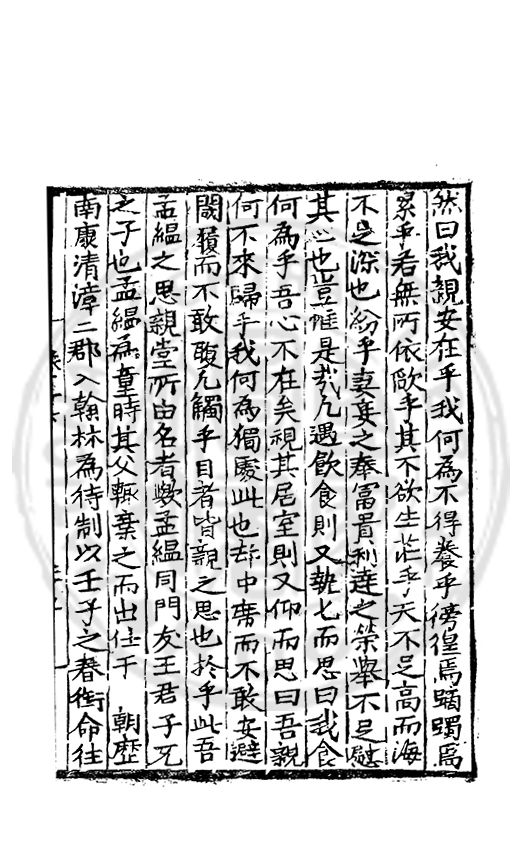 然曰我親安在乎我何為不得養乎徬徨焉躑躅焉
累乎若無所依歐乎其不欲生茫乎天不足高而海
不足深也紛乎妻妾之奉富貴利達之榮舉不足慰
其心也豈惟是哉凡遇飲食則又執匕而思曰我食
何為乎吾心不在矣視其居室則又仰而思曰吾親
何不來歸乎我何為獨處此也却中席而不敢安避
閣奠而不敢履凡觸乎目者皆親之思也於乎此吾
孟緼之思親堂所由名者歟孟緼同門友王君子充
之子也孟緼為童時其父輒棄之而出仕于 朝歷
南康清漳二郡入翰林為待制以壬子之春銜命往